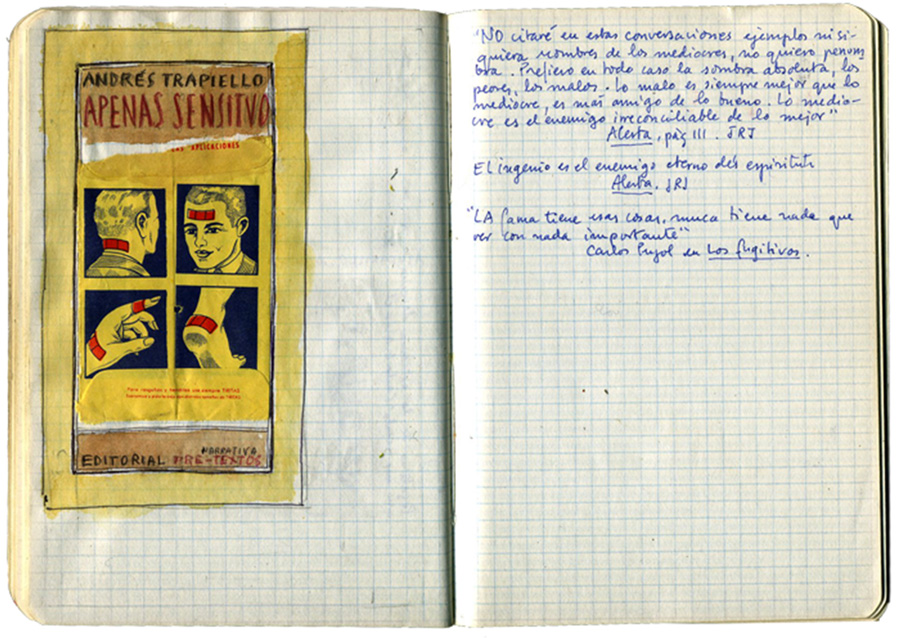 ANDRÉS TRAPIELLO
APENAS SENSITIVO
APLICACIONES
NARRATIVA
EDITORIAL PRE-TEXTOS
"NO citaré en estas conversaciones ejemplos ni si-
quiera nombres de los mediocres, no quiero penum
bra. Prefiero en todo caso la sombra absoluta, los
peores, los malos. Lo malo es siempre mejor que lo
mediocre, es más amigo de lo bueno. Lo medio-
cre es el enemigo irreconciliable de lo mejor"
Alerta, pág III. JRJ
El ingenio es el enemigo eterno del espíritu
Alerta. JRJ
"LA fama tiene esas cosas, nunca tiene nada que
ver con nada importante"
Carlos Pujol en Los fugitivos.